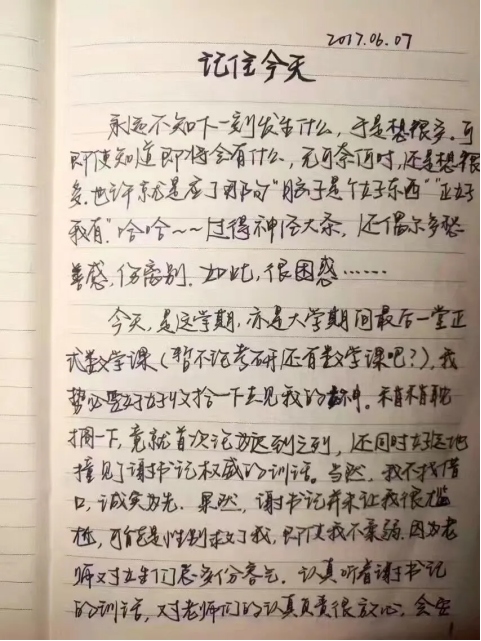 2017.06.07
记住今天
永远不知下一刻发生什么，于是想很多。可
即使知道即将会有什么，无可奈何时，还是想很
多。也许就是应了那句"脑子是个好东西""正好
我有"。哈哈~~过得神经大条，还偶尔多愁
善感，伤离别。如此，很困惑……
今天，是这学期，亦是大学期间最后一堂正
式数学课（暂不论考研还有数学课吧？），我
势必要好好收拾一下去见我的神。未有不有耽
搁一下，竟就首次沦为迟到之列，还同时好运地
撞见了谢书记权威的训话。当然，我不找借
口，诚实为先。果然，谢书记并未让我很尴
尬，可能是性别救了我，即使我不柔弱。因为老
师对女生们总多份客气。认真听着谢书记
的训话，对老师们的认真负责很放心。会